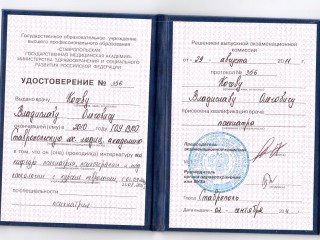 Государственное образовательное учреждение
высшего профессионального образования
«СТАВРОПОЛЬСКАЯ
ГОСУДАРСТВЕННАЯ МЕДИЦИНСКАЯ АКАДЕМИЯ»
МИНИСТЕРСТВА ЗДРАВООХРАНЕНИЯ И СОЦИАЛЬНОГО
РАЗВИТИЯ РОССИЙСКОЙ ФЕДЕРАЦИИ
УДОСТОВЕРЕНИЕ № 356
Выдано врачу
Владиславу Олеговичу
окончившему(ей) в 2010 ГОУ ВПО
Ставропольскую гос. медиц. академию
в том, что он (она) проходил(а) интернатуру по
кафедре психиатрии, психотерапии и
наркологии с курсом неврологии,
по специальности
психиатрия
Решением выпускной экзаменационной
комиссии
от «29» августа 2011 г.
протокол № 356
Владиславу Олеговичу
присвоена квалификация врача
психиатра
Председатель
экзаменационной
комиссии
Руководитель
Город Ставрополь
Дата выдачи «02» сентября 2011 г.